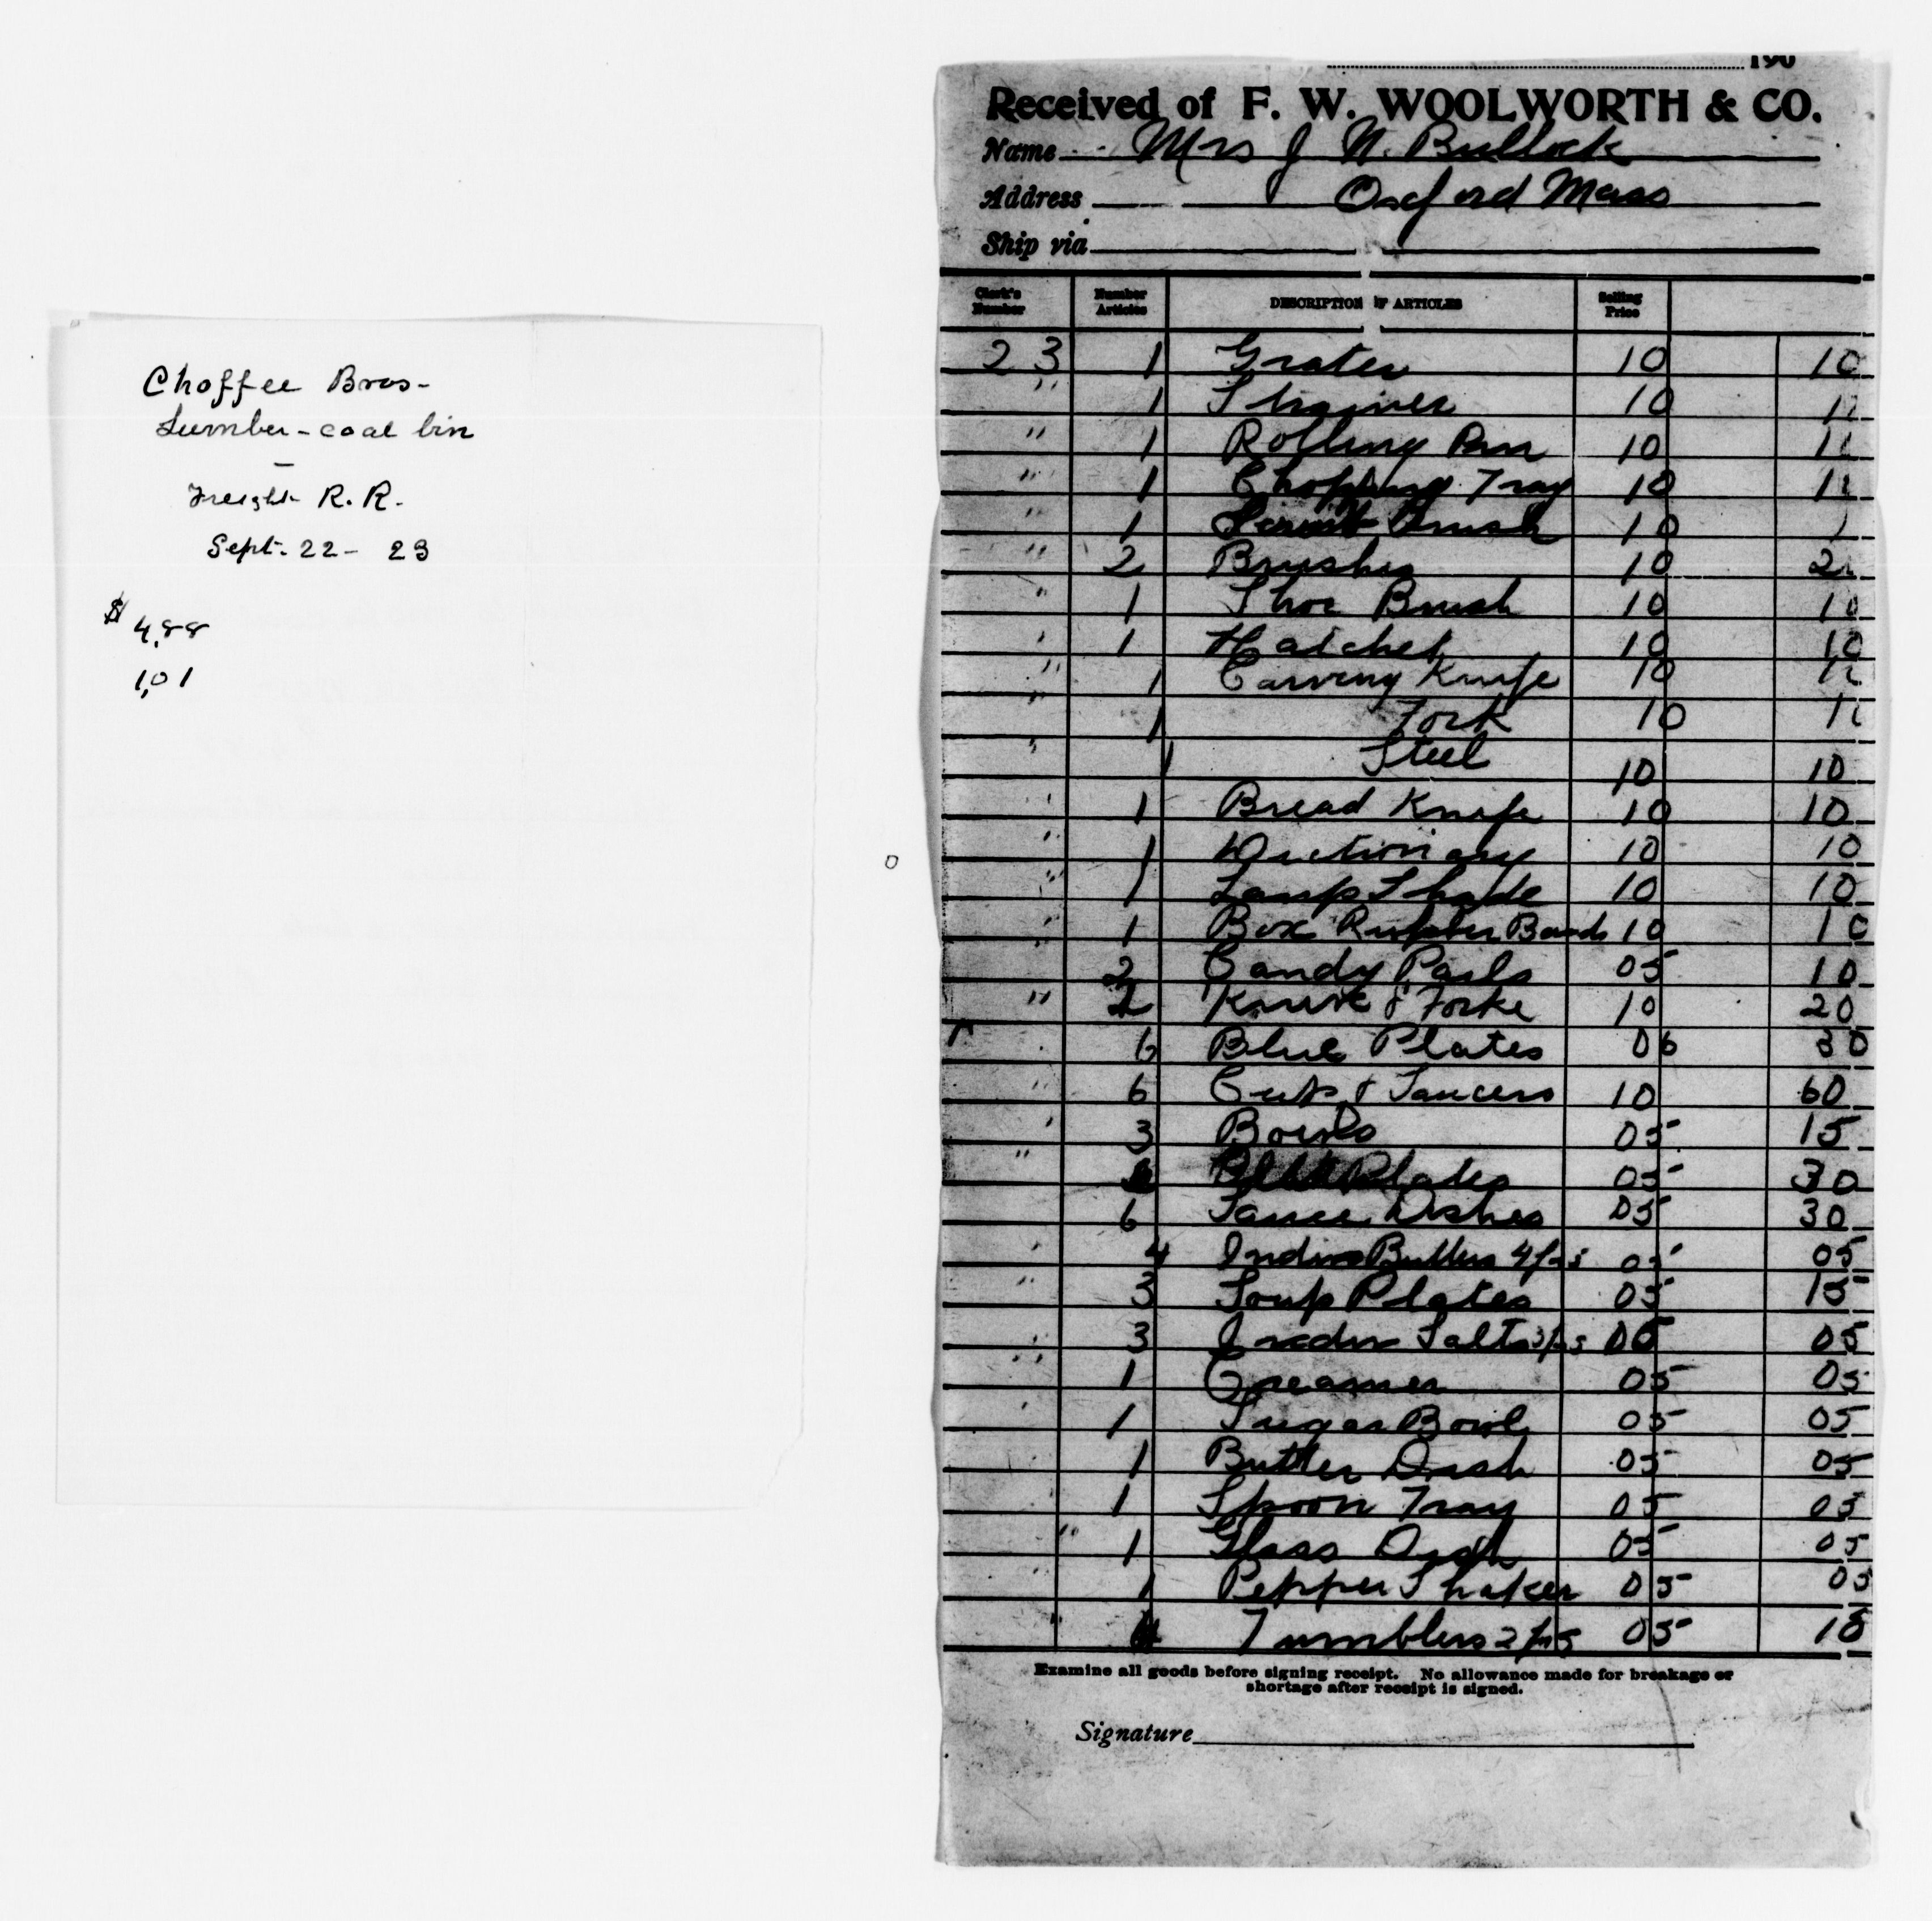 Choffee Bros-
Lumber - coal bin
-
Freight R. R.
Sept. 22 - 23
$ 4.88
1.01
190
Received of F. W. WOOLWORTH & CO.
Name Mrs J N. Bullock
Address Oxford Mass
Ship via
Clerk's Number Number Articles DESCRIPTION OF ARTICLES Selling Price
23 1 Grater 10 10
" 1 Strainer 10 1
" 1 Rolling Pin 10 1
" 1 Chopping Tray 10 1
" 1 Brush 10 1
" 2 Brushes 10 2
" 1 Shoe Brush 10 10
" 1 Hatchet 10 10
" 1 Carving Knife 10 1
" 1 Fork 10 1
" 1 Steel 10 10
" 1 Bread Knife 10 10
" 1 Dictionary 10 10
" 1 Lamp Shade 10 10
" 1 Box Rubber Bands 10 10
2 Candy Pails 05 10
" 2 Knive & Forke 10 20
6 Blue Plates 05 30
" 6 Cups & Saucers 10 60
" 3 Bowls 05 15
" Plates 05 30
6 Sauce Dishes 05 30
" 4 Indiv Butters 4 for 5 05 05
" 3 Soup Plates 05 15
" 3 Indiv Salts 3 for 5 05 05
" 1 Creamer 05 05
" 1 Sugar Bowl 05 05
1 Butter Dish 05 05
1 Spoon Tray 05 05
" 1 Glass Dish 05 05
1 Pepper Shaker 05 05
" 4 Tumblers 2 for 5 05 10
Examine all goods before signing receipt. No allowance made for breakage or
shortage after receipt is signed.
Signature